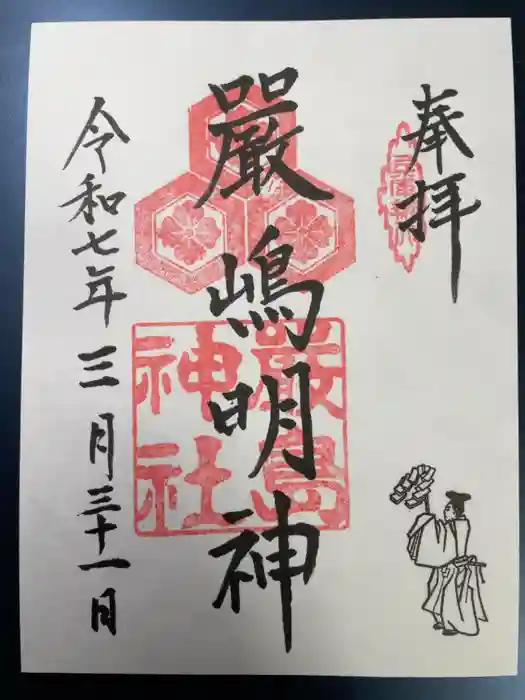 奉拝
兵庫
嚴嶋明神
嚴島
神社
令和七年三月三十一日